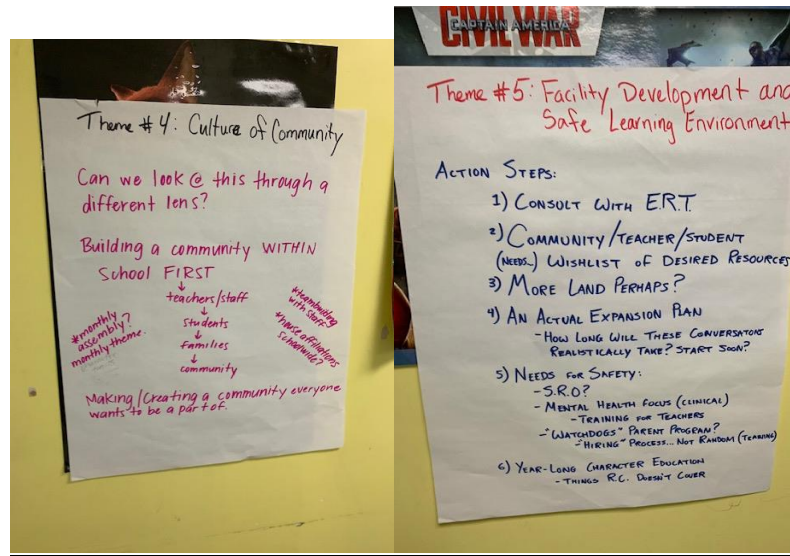 Theme #4: Culture of Community
Can we look @ this through a
different lens?
Building a community WITHIN
School FIRST
↓
teachers/staff
↓
students
↓
families
↓
community
*monthly
assembly?
monthly theme.
*teambuilding
with staff
*house affiliations
schoolwide?
Making/Creating a community everyone
wants to be a part of.
CIVIL WAR
CAPTAIN AMERICA
Theme #5: Facility Development and
Safe Learning Environment
ACTION STEPS:
1) CONSULT WITH E.R.T.
2) COMMUNITY/TEACHER/STUDENT
(NEEDS..) WISHLIST OF DESIRED RESOURCES
3) MORE LAND PERHAPS?
4) AN ACTUAL EXPANSION PLAN
- HOW LONG WILL THESE CONVERSATIONS
REALISTICALLY TAKE? START SOON?
5) NEEDS FOR SAFETY:
- S.R.O?
- MENTAL HEALTH FOCUS (CLINICAL)
- TRAINING FOR TEACHERS
- "WATCHDOGS" PARENT PROGRAM?
- "HIRING" PROCESS... NOT RANDOM (TEAMING)
6) YEAR-LONG CHARACTER EDUCATION
- THINGS R.C. DOESN'T COVER